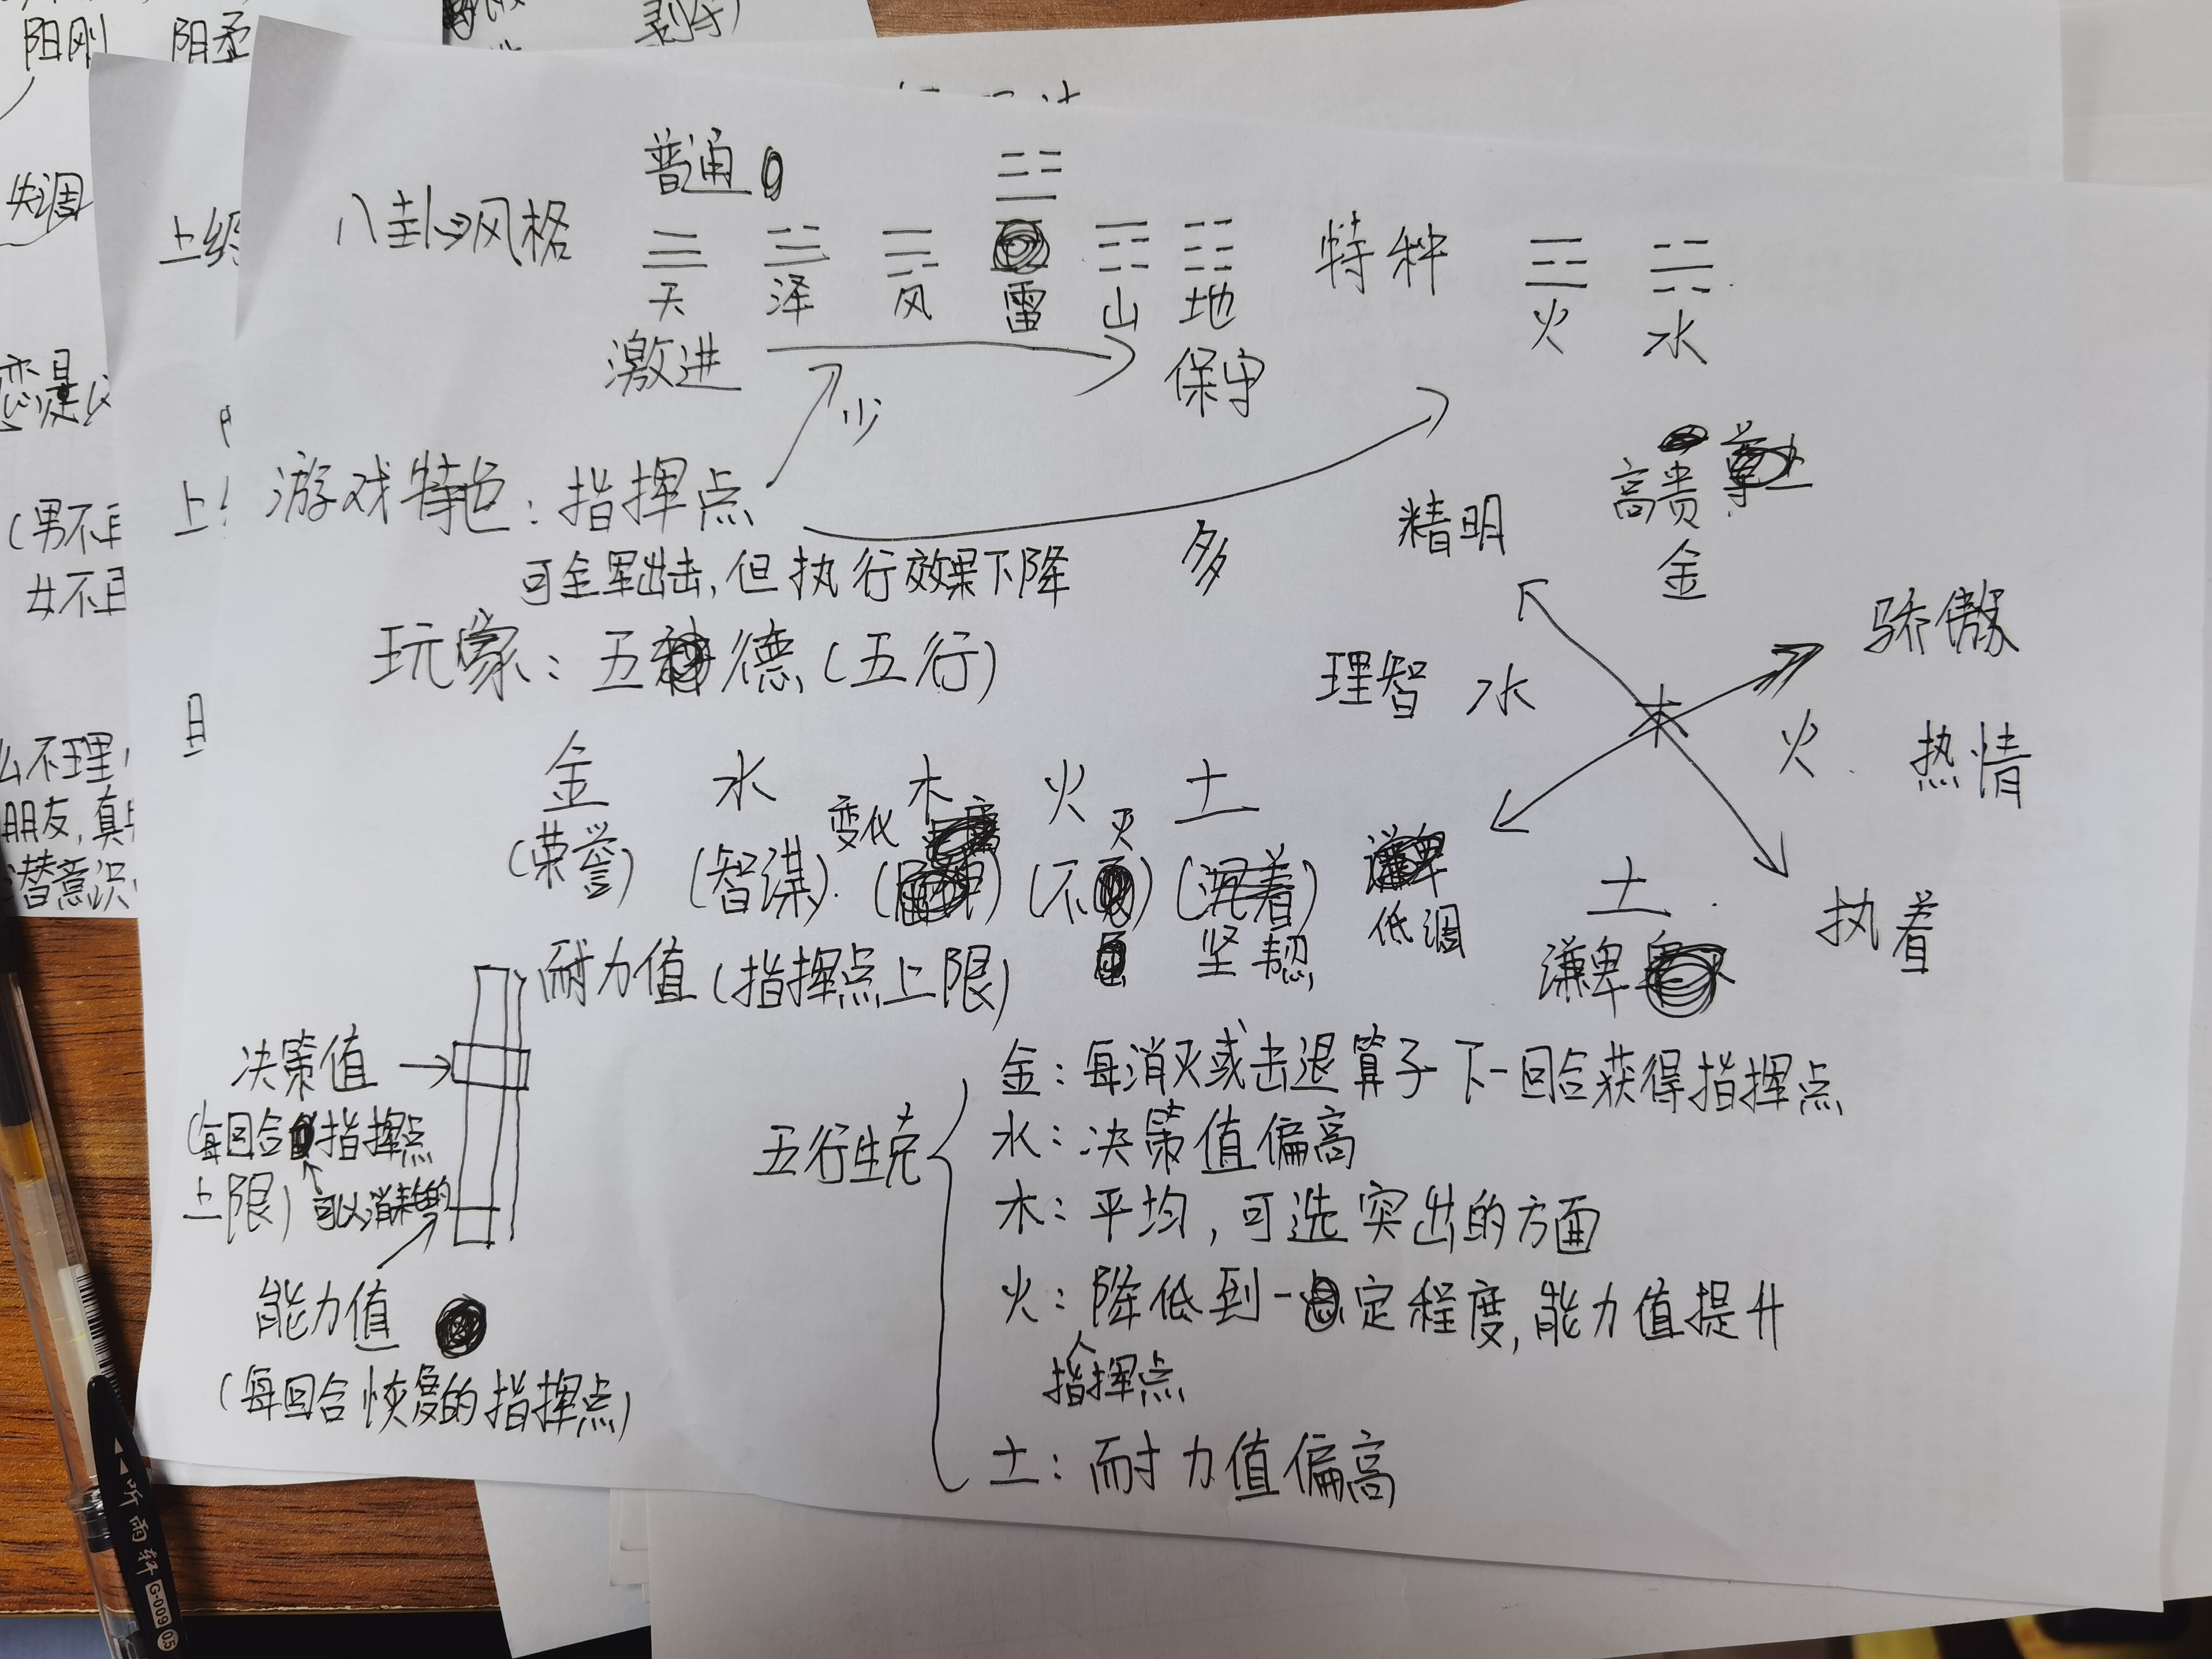 阳刚 阴柔
失调
上经
(男不
女不
么不理
朋友,真
潜意识
普通
八卦→风格
天 泽 风 雷 山 地 特种 火 水
激进 保守
少
游戏特色:指挥点
多
可全军出击,但执行效果下降
玩家:五德(五行)
金 水 木 火 土
(荣誉) (智谋) 变化 (不灭) (沉着)
坚韧
耐力值(指挥点上限)
决策值
(每回合指挥点
上限) 可以消耗的
能力值
(每回合恢复的指挥点)
精明 高贵
金
骄傲
理智 水 木 火 热情
谦卑
低调
土
谦卑
执着
五行生克
金:每消灭或击退算子下一回合获得指挥点
水:决策值偏高
木:平均,可选突出的方面
火:降低到一定程度,能力值提升
指挥点
土:耐力值偏高
听雨轩 G-009 0.5